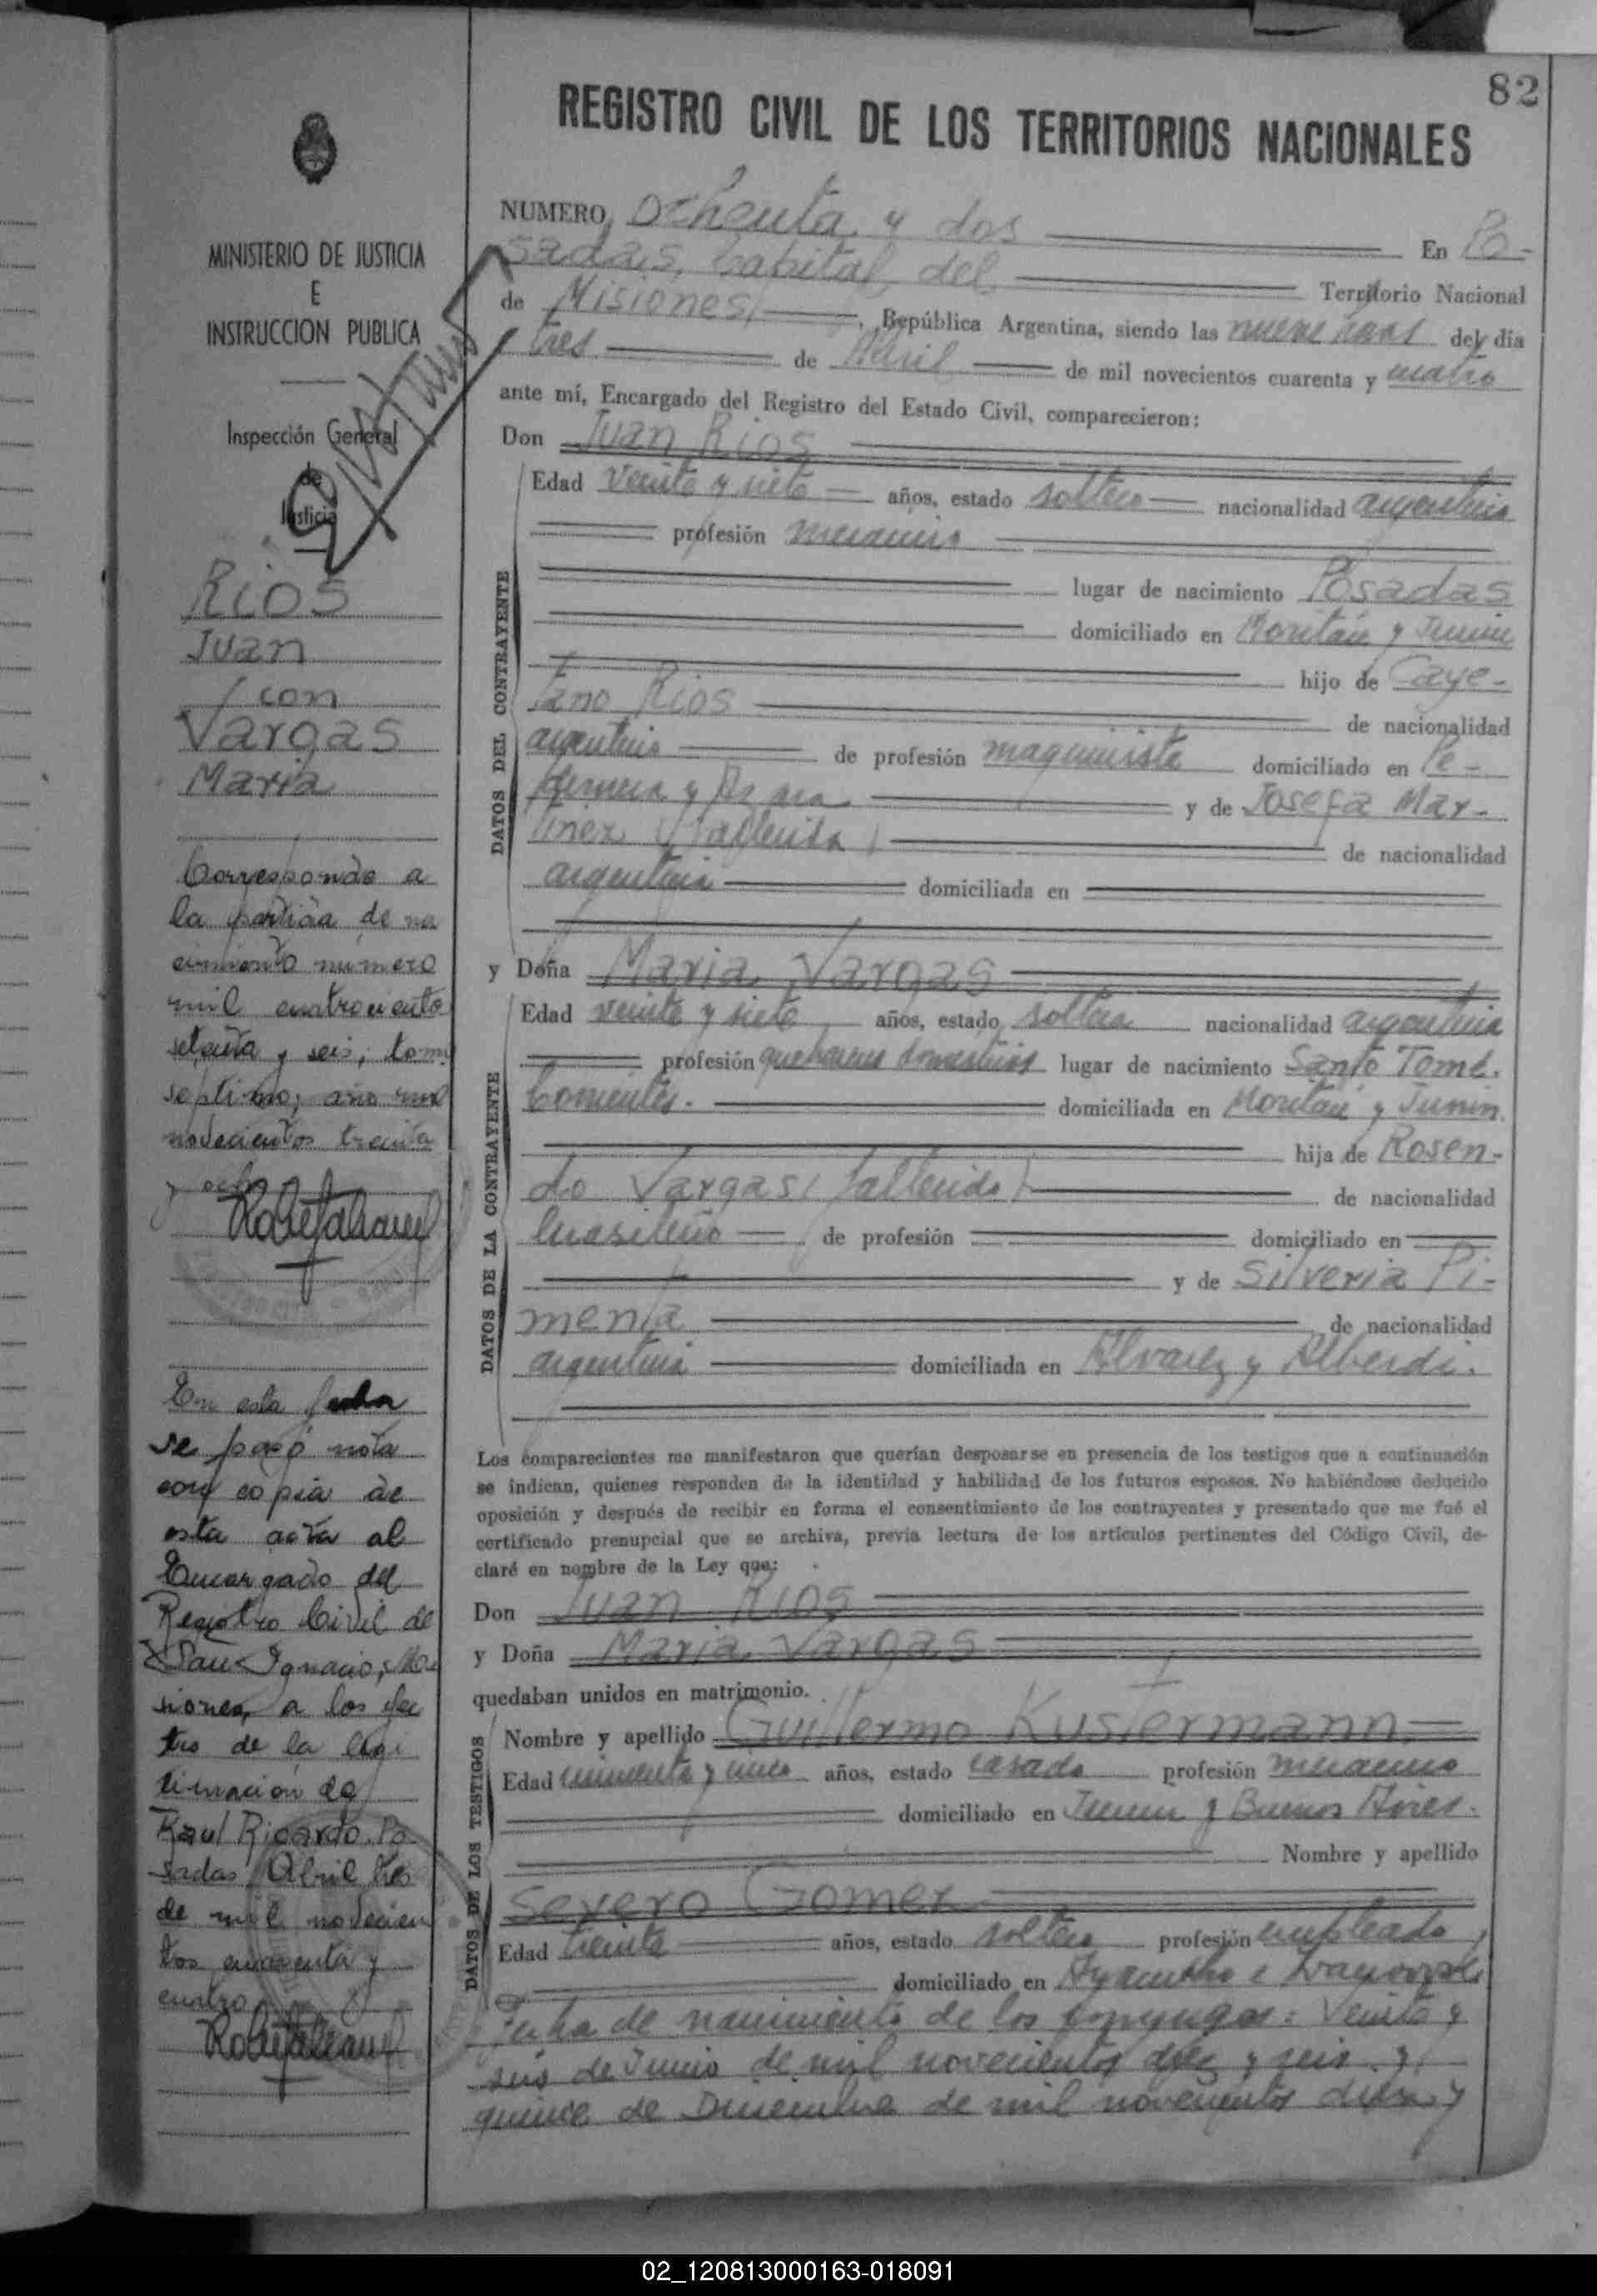 82
REGISTRO CIVIL DE LOS TERRITORIOS NACIONALES
MINISTERIO DE JUSTICIA
E
INSTRUCCION PUBLICA
Inspección General
de
Justicia
Rios
Juan
con
Vargas
Maria
Corresponde a
la partida de na
cimiento numero
mil cuatrociento
setenta y seis, tomo
septimo, año mil
novecientos treinta
y ocho
En esta fecha
se pasó nota
con copia de
esta acta al
Encargado del
Registro Civil de
San Ignacio, Mi
siones, a los efec
tos de la legi
timación de
Raul Ricardo. Po
sadas, Abril tres
de mil novecien
tos cuarenta y
cuatro
NUMERO Ochenta y dos En Po-
sadas, Capital del Territorio Nacional
de Misiones, República Argentina, siendo las nueve horas del día
tres de Abril de mil novecientos cuarenta y cuatro
ante mí, Encargado del Registro del Estado Civil, comparecieron:
Don Juan Rios
DATOS DEL CONTRAYENTE
Edad veinte y siete años, estado soltero nacionalidad argentino
profesión mecanico
lugar de nacimiento Posadas
domiciliado en y Junin
hijo de Caye-
tano Rios de nacionalidad
argentino de profesión maquinista domiciliado en
y Azara y de Josefa Mar-
tinez (fallecida) de nacionalidad
argentina domiciliada en
y Doña Maria Vargas
DATOS DE LA CONTRAYENTE
Edad veinte y siete años, estado soltera nacionalidad argentina
profesión quehaceres domesticos lugar de nacimiento Santo Tomé.
Corrientes. domiciliada en y Junin.
hija de Rosen-
do Vargas (fallecido) de nacionalidad
brasileño de profesión domiciliado en
y de Silveria Pi-
menta de nacionalidad
argentina domiciliada en Alvarez y Alberdi.
Los comparecientes me manifestaron que querían desposarse en presencia de los testigos que a continuación
se indican, quienes responden de la identidad y habilidad de los futuros esposos. No habiéndose deducido
oposición y después de recibir en forma el consentimiento de los contrayentes y presentado que me fué el
certificado prenupcial que se archiva, previa lectura de los artículos pertinentes del Código Civil, de-
claré en nombre de la Ley que:
Don Juan Rios
y Doña Maria Vargas
quedaban unidos en matrimonio.
DATOS DE LOS TESTIGOS
Nombre y apellido Guillermo Kustermann
Edad años, estado casado profesión mecanico
domiciliado en Junin y Buenos Aires.
Nombre y apellido
Severo Gomez
Edad treinta años, estado soltero profesión empleado,
domiciliado en Ayacucho e
Fecha de nacimiento de los conyuges: Veinte y
seis de Junio de mil novecientos diez y seis y
quince de Diciembre de mil novecientos diez y
02_120813000163-018091